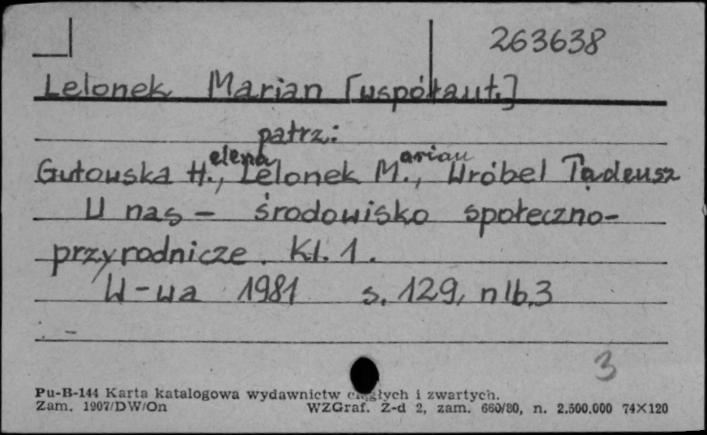 263638
Lelonek Marian [współaut.]
patrz:
Gutowska H.elena, Lelonek M.arian, Wróbel Tadeusz
U nas – środowisko społeczno-
przyrodnicze. Kl. 1.
W-wa 1981 s. 129, nlb. 3
3
Pu-B-144 Karta katalogowa wydawnictw ciągłych i zwartych.
Zam. 1907/DW/On WZGraf. Z-d 2, zam. 660/80, n. 2.500.000 74×120